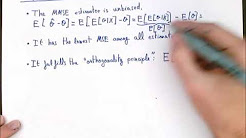 • The MMSE estimator is unbiased.
E[θ̂-θ] = E[E[θ|X]-θ] = E[E[θ|X]] - E[θ] =
E[θ]
• It has the lowest MSE among all estima
• It fulfills the "orthogonality principle" E[